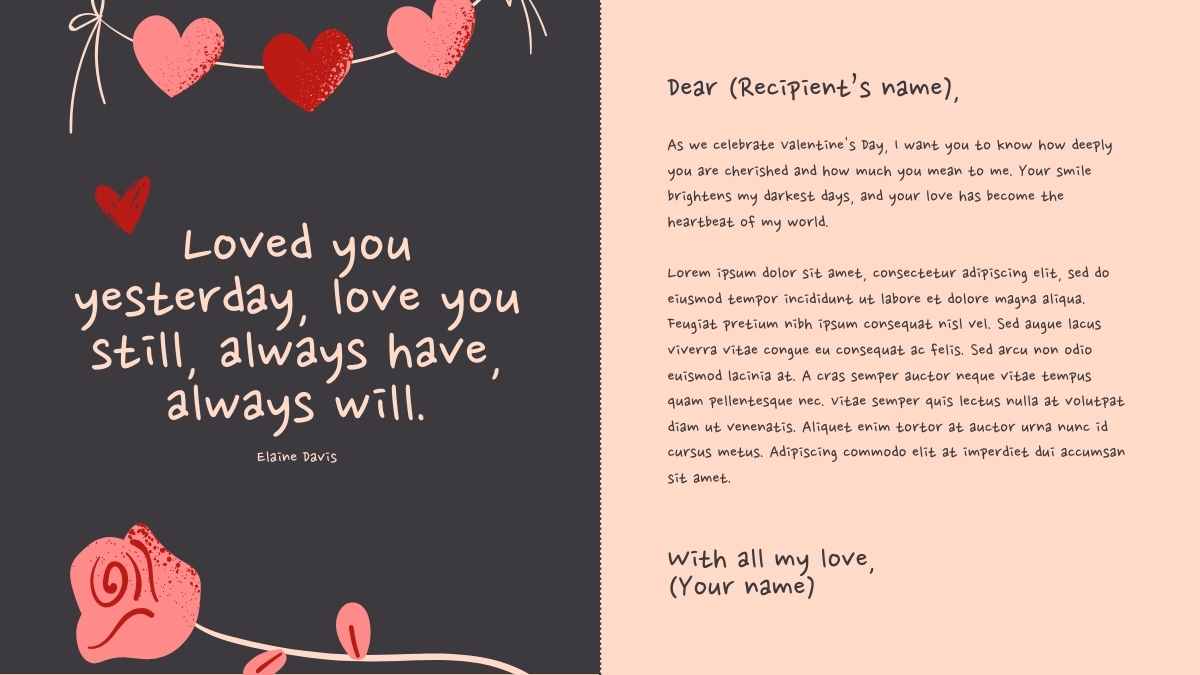 Loved you
yesterday, love you
still, always have,
always will.
Elaine Davis
Dear (Recipient's name),
As we celebrate Valentine's Day, I want you to know how deeply
you are cherished and how much you mean to me. Your smile
brightens my darkest days, and your love has become the
heartbeat of my world.
Lorem ipsum dolor sit amet, consectetur adipiscing elit, sed do
eiusmod tempor incididunt ut labore et dolore magna aliqua.
Feugiat pretium nibh ipsum consequat nisl vel. Sed augue lacus
viverra vitae congue eu consequat ac felis. Sed arcu non odio
euismod lacinia at. A cras semper auctor neque vitae tempus
quam pellentesque nec. Vitae semper quis lectus nulla at volutpat
diam ut venenatis. Aliquet enim tortor at auctor urna nunc id
cursus metus. Adipiscing commodo elit at imperdiet dui accumsan
sit amet.
With all my love,
(Your name)